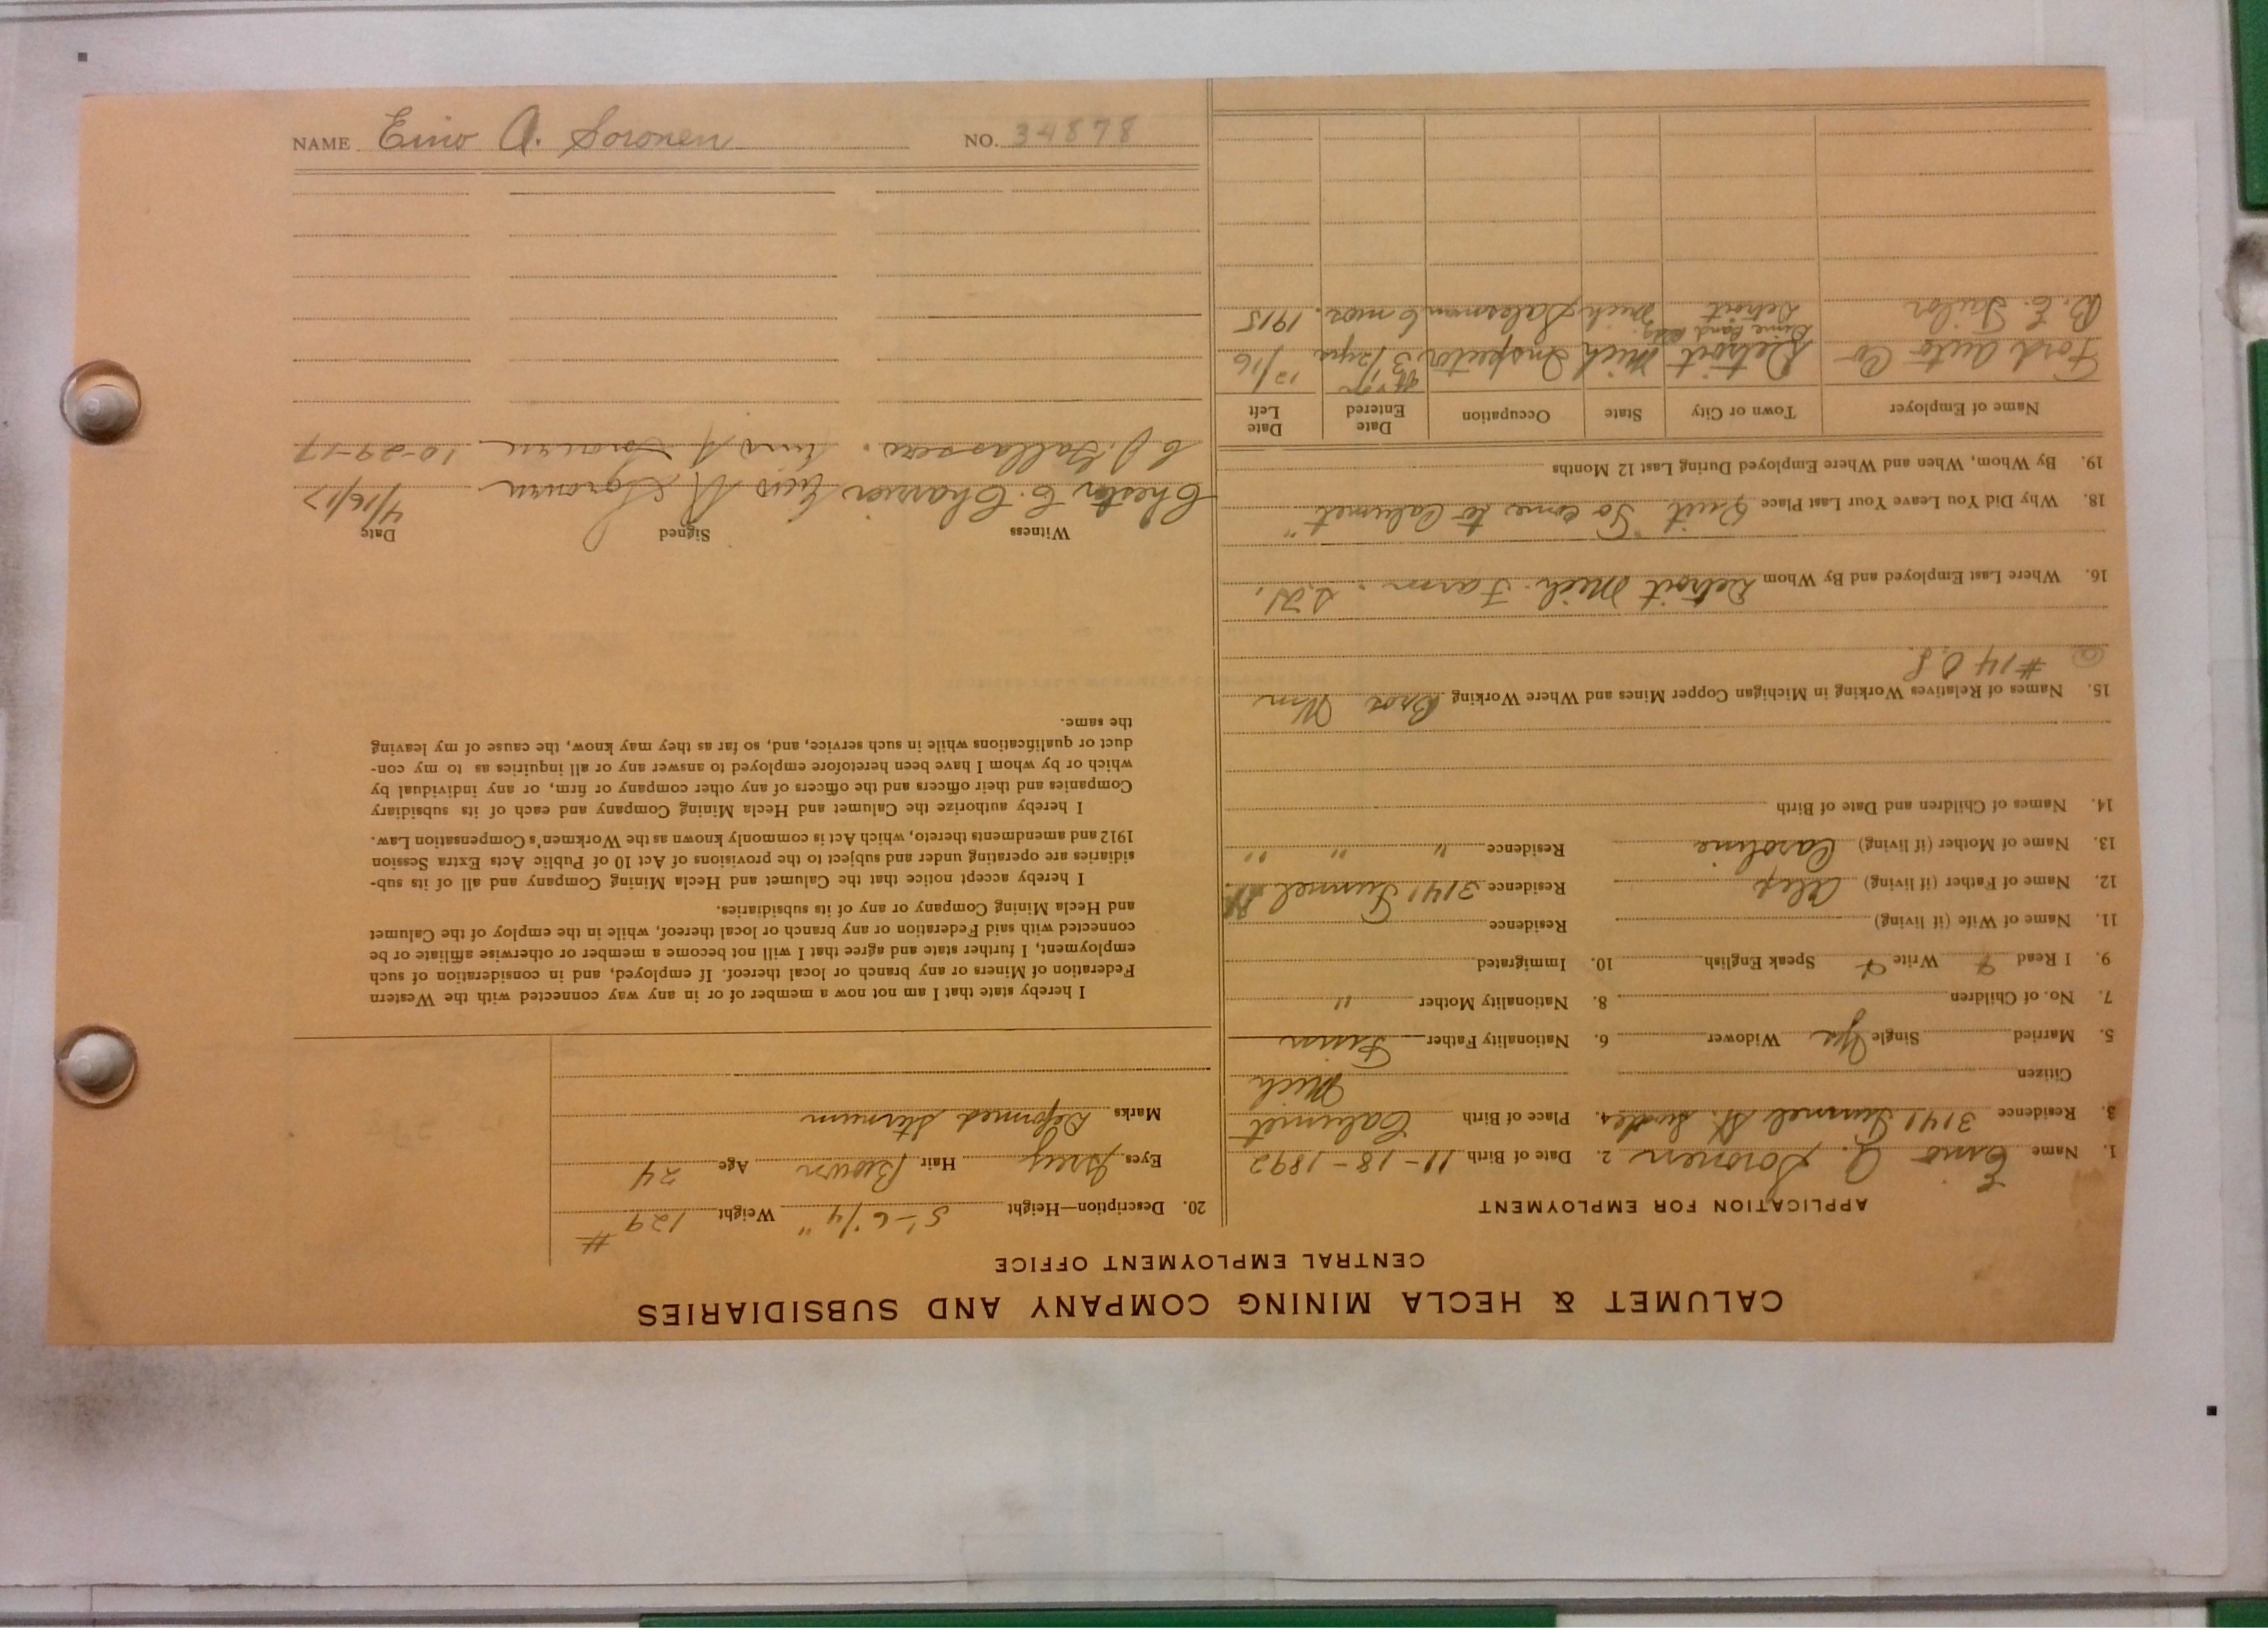 CALUMET & HECLA MINING COMPANY AND SUBSIDIARIES
CENTRAL EMPLOYMENT OFFICE
APPLICATION FOR EMPLOYMENT
1. Name Eino A. Soronen 2. Date of Birth 11-18-1892
3. Residence 3141 Tunnel St. 4. Place of Birth Calumet
Citizen Mich
5. Married Single Yes Widower 6. Nationality Father Finn
7. No. of Children 8. Nationality Mother "
9. I Read Write Speak English 10. Immigrated
11. Name of Wife (if living) Residence
12. Name of Father (if living) Alex Residence 3141 Tunnel St
13. Name of Mother (if living) Caroline Residence " " "
14. Names of Children and Date of Birth
15. Names of Relatives Working in Michigan Copper Mines and Where Working Bros Wm
#14 O.S.
16. Where Last Employed and By Whom Detroit Mich. Farm.
18. Why Did You Leave Your Last Place Quit "To come to Calumet"
19. By Whom, When and Where Employed During Last 12 Months
Name of Employer Town or City State Occupation Date Entered Date Left
Ford Auto Co Detroit Mich Inspector 3 1/2 yrs 12/16
Dime Bank Bldg.
B. E. Tailor Detroit Mich Salesman 6 mos. 1915
20. Description—Height 5'-6 1/4" Weight 129 #
Eyes Grey Hair Brown Age 24
Marks Deformed Sternum
I hereby state that I am not now a member of or in any way connected with the Western
Federation of Miners or any branch or local thereof. If employed, and in consideration of such
employment, I further state and agree that I will not become a member or otherwise affiliate or be
connected with said Federation or any branch or local thereof, while in the employ of the Calumet
and Hecla Mining Company or any of its subsidiaries.
I hereby accept notice that the Calumet and Hecla Mining Company and all of its sub-
sidiaries are operating under and subject to the provisions of Act 10 of Public Acts Extra Session
1912 and amendments thereto, which Act is commonly known as the Workmen's Compensation Law.
I hereby authorize the Calumet and Hecla Mining Company and each of its subsidiary
Companies and their officers and the officers of any other company or firm, or any individual by
which or by whom I have been heretofore employed to answer any or all inquiries as to my con-
duct or qualifications while in such service, and, so far as they may know, the cause of my leaving
the same.
Witness Signed Date
Chester C. Charrier Eino A Soronen 4/16/17
Eino A Soronen 10-29-17
NAME Eino A. Soronen NO. 34878